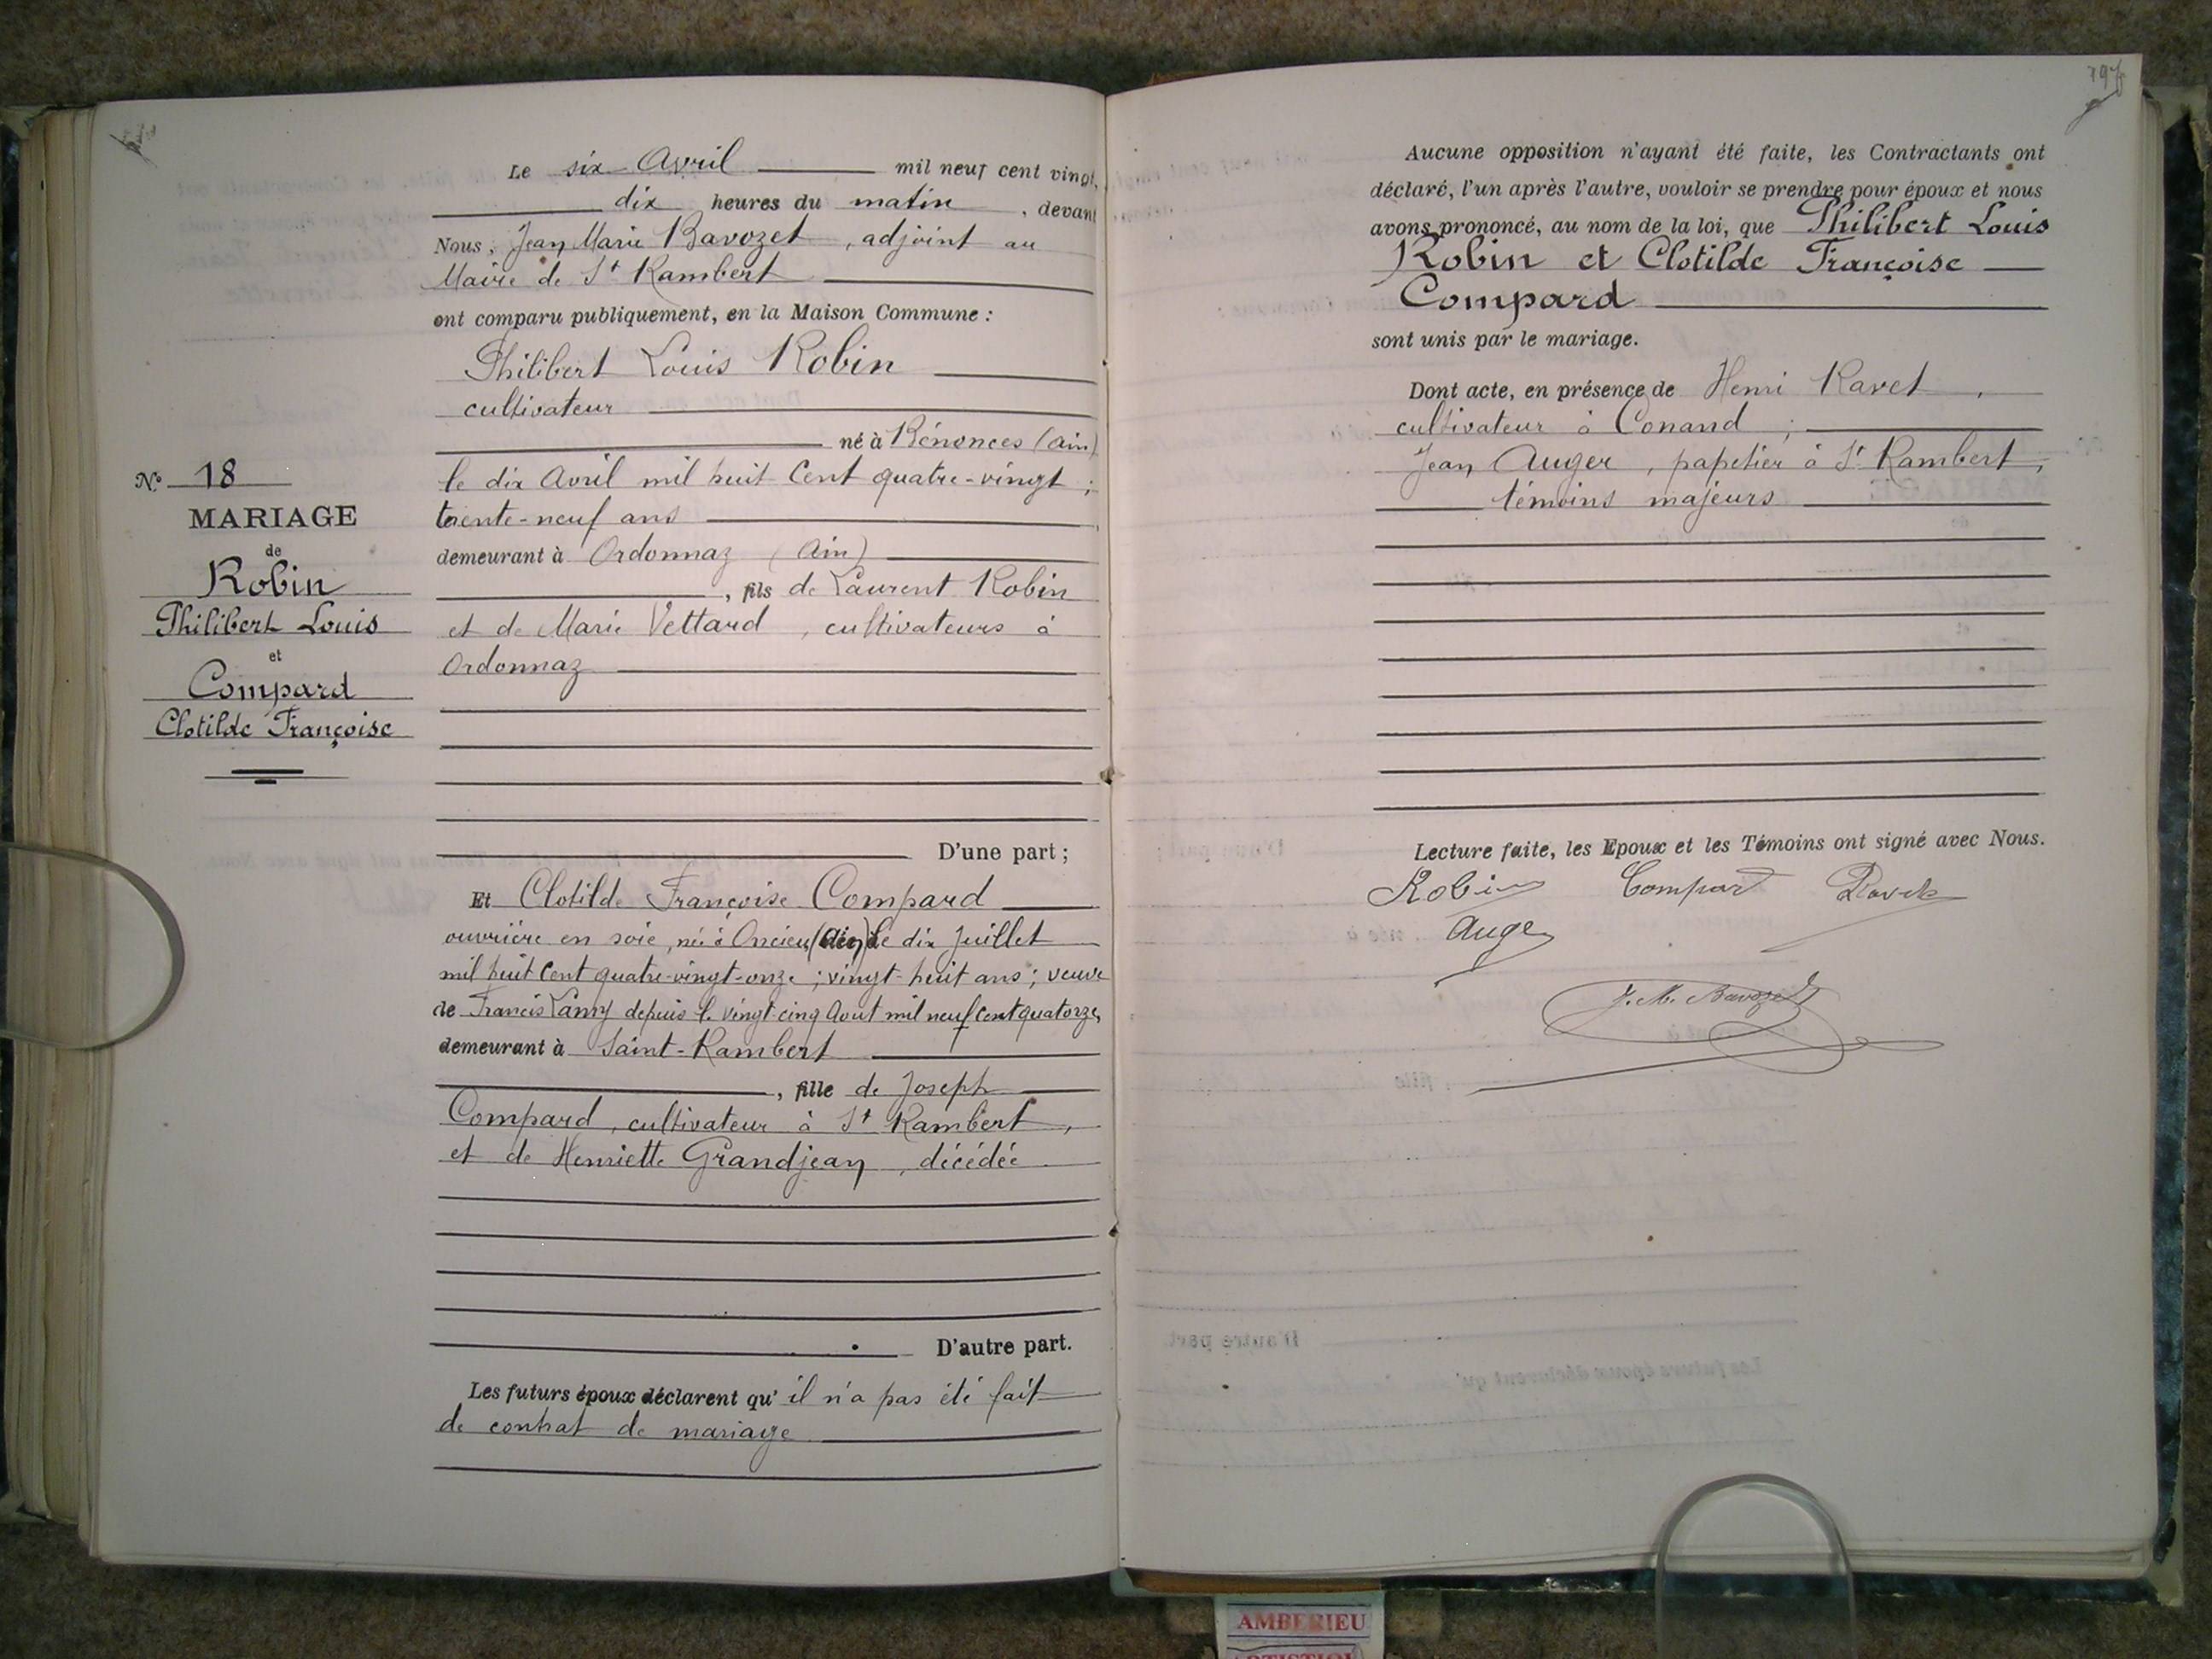 Le six Avril mil neuf cent vingt,
dix heures du matin, devant
Nous, Jean Marie Bavozet, adjoint au
Maire de St Rambert
ont comparu publiquement, en la Maison Commune :
Philibert Louis Robin
cultivateur
né à Bénonces (Ain)
le dix Avril mil huit Cent quatre-vingt ;
trente-neuf ans
demeurant à Ordonnaz (Ain)
, fils de Laurent Robin
et de Marie Vettard, cultivateurs à
Ordonnaz
D'une part ;
N° 18
MARIAGE
de
Robin
Philibert Louis
et
Compard
Clotilde Françoise
Et Clotilde Françoise Compard
ouvrière en soie, née à Oncieu (Ain) le dix Juillet
mil huit Cent quatre-vingt-onze ; vingt-huit ans ; veuve
de Francis Lamy depuis le vingt-cinq Août mil neuf Cent quatorze,
demeurant à Saint-Rambert
, fille de Joseph
Compard, cultivateur à St Rambert,
et de Henriette Grandjean, décédée
D'autre part.
Les futurs époux déclarent qu'il n'a pas été fait
de contrat de mariage
Aucune opposition n'ayant été faite, les Contractants ont
déclaré, l'un après l'autre, vouloir se prendre pour époux et nous
avons prononcé, au nom de la loi, que Philibert Louis
Robin et Clotilde Françoise
Compard
sont unis par le mariage.
Dont acte, en présence de Henri Ravet,
cultivateur à Conand ;
Jean Auger, papetier à St Rambert,
témoins majeurs
Lecture faite, les Epoux et les Témoins ont signé avec Nous.
Robin Compard Ravet
Auger
J. M. Bavozet
AMBERIEU